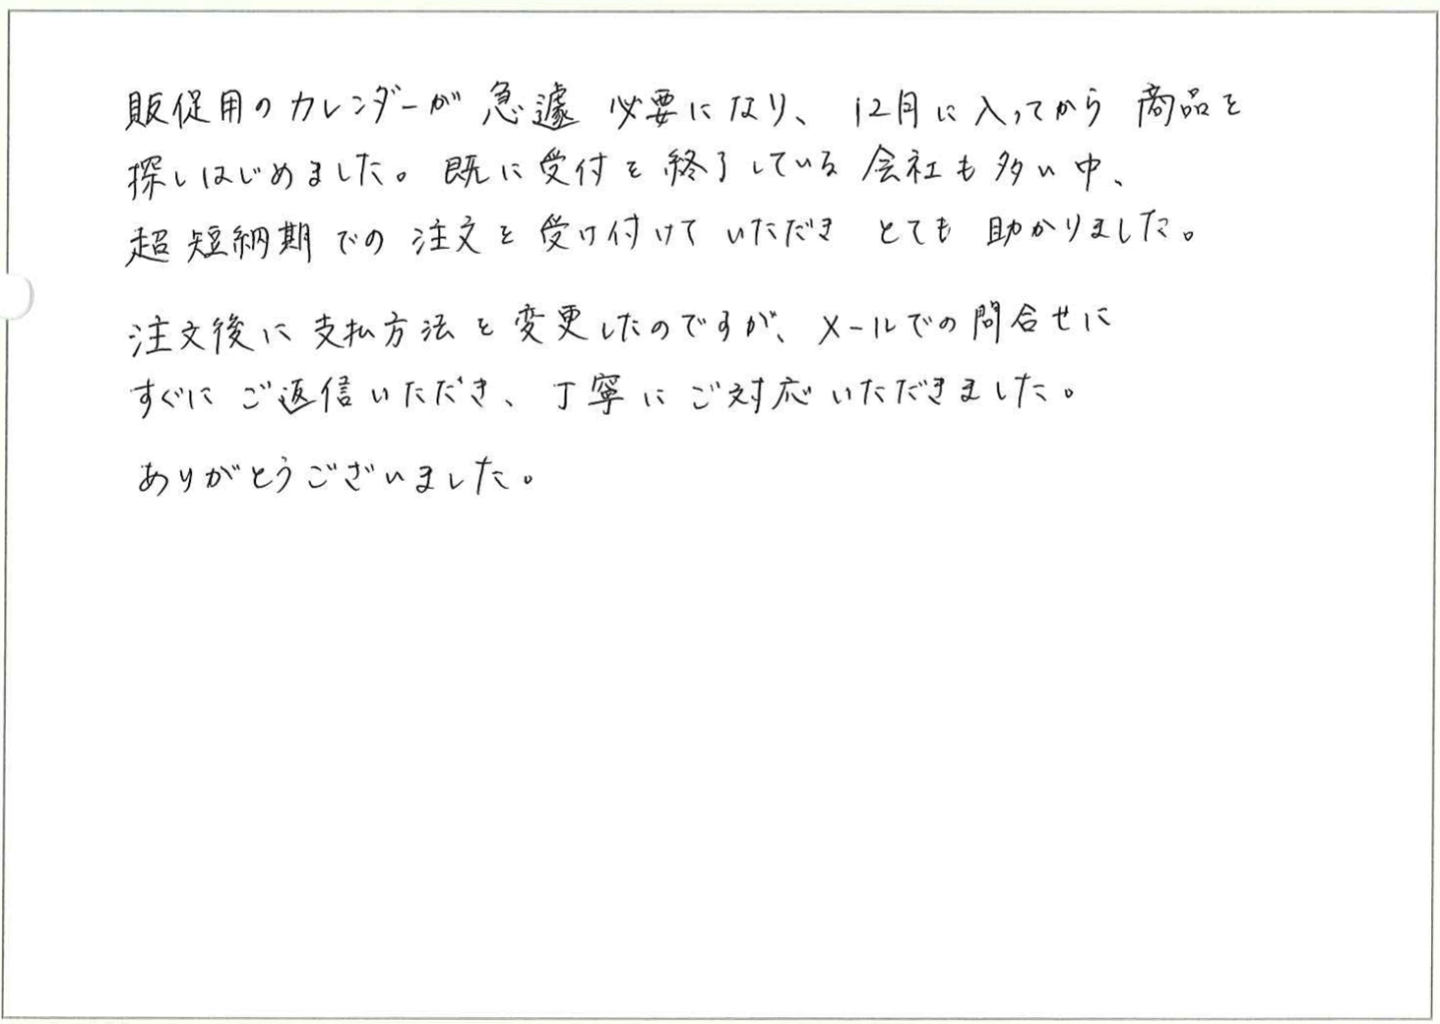 販促用のカレンダーが急遽必要になり、12月に入ってから商品を
探しはじめました。既に受付を終了している会社も多い中、
超短納期での注文を受け付けていただきとても助かりました。
注文後に支払方法を変更したのですが、メールでの問合せに
すぐにご返信いただき、丁寧にご対応いただきました。
ありがとうございました。